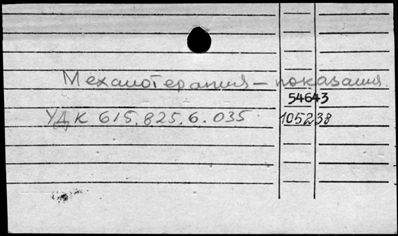 Механотерапия — показания
54643
УДК 615.825.6.035
105238